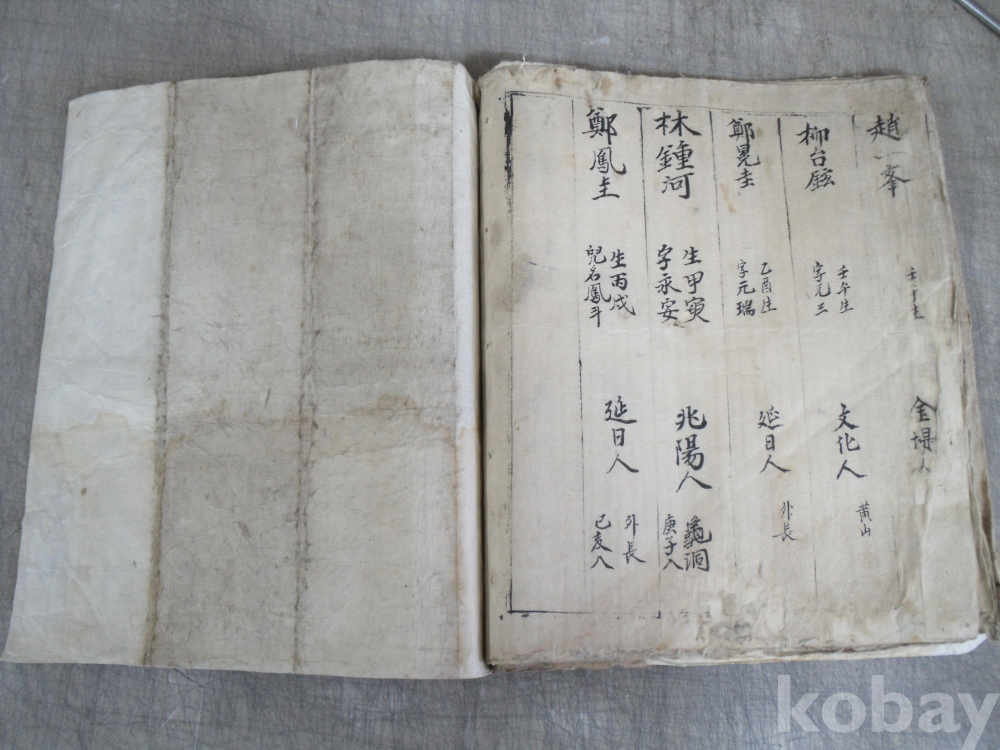 趙一峯
壬午生
金堤人
柳台鉉
壬午生
字元三
文化人
黃山
鄭晃圭
乙酉生
字元瑞
延日人
外長
林鍾河
生甲寅
字永安
兆陽人
龜洞
庚子入
鄭鳳圭
生丙戌
兒名鳳斗
延日人
外長
己亥入
kobay